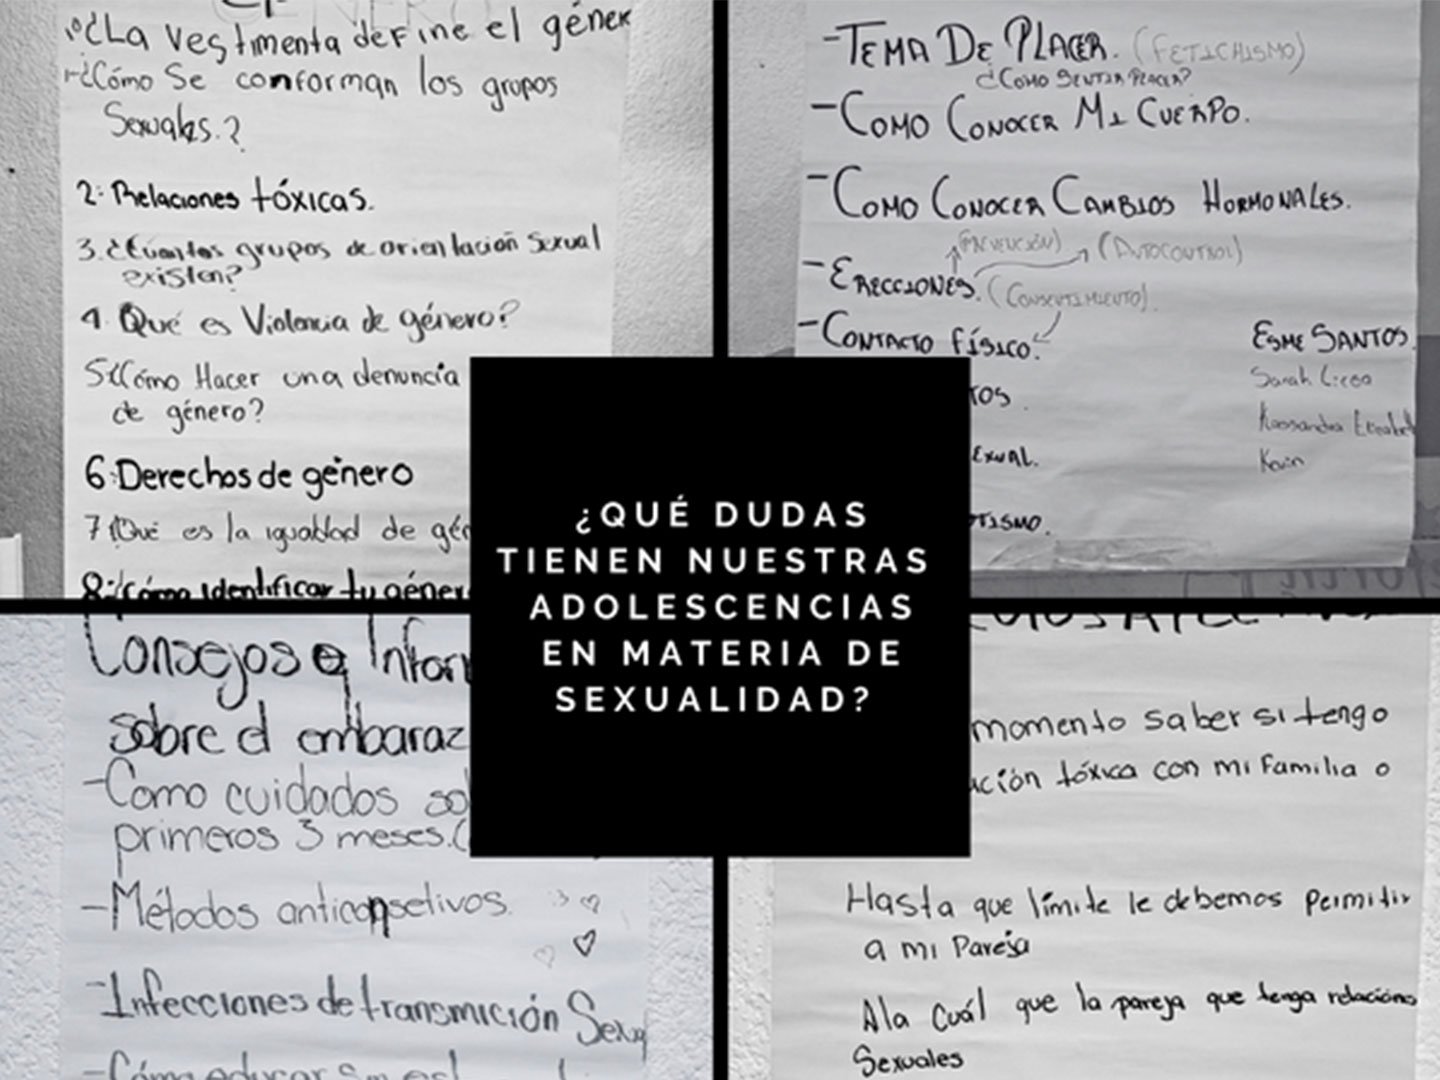 GÉNERO
1º¿La vestimenta define el géner
1-¿Cómo Se conforman los grupos
Sexuales.?
2: Relaciones tóxicas.
3. ¿Cuantos grupos de orientación sexual
existen?
4. Qué es Violencia de género?
5¿Cómo Hacer una denuncia
de género?
6: Derechos de género
7 ¿Qué es la igualdad de gén
8: ¿Cómo identificar tu géner
-TEMA DE PLACER. (FETICHISMO)
¿COMO SENTIR PLACER?
-COMO CONOCER MI CUERPO.
-COMO CONOCER CAMBIOS HORMONALES.
(PREVENCIÓN) (AUTOCONTROL)
-ERECCIONES. (CONSENTIMIENTO)
-CONTACTO FÍSICO.
TOS
EXUAL.
TISMO.
ESME SANTOS.
Sarah
Kevin
¿QUÉ DUDAS
TIENEN NUESTRAS
ADOLESCENCIAS
EN MATERIA DE
SEXUALIDAD?
Consejos e Infor
sobre el embaraz
-Como cuidados so
primeros 3 meses.(
-Métodos anticonsetivos.
-Infecciones de transmición Sexu
-Cómo educar
momento saber si tengo
ación tóxica con mi Familia o
Hasta que límite le debemos permitir
a mi Pareja
Ala Cuál que la pareja que tenga relacións
Sexuales